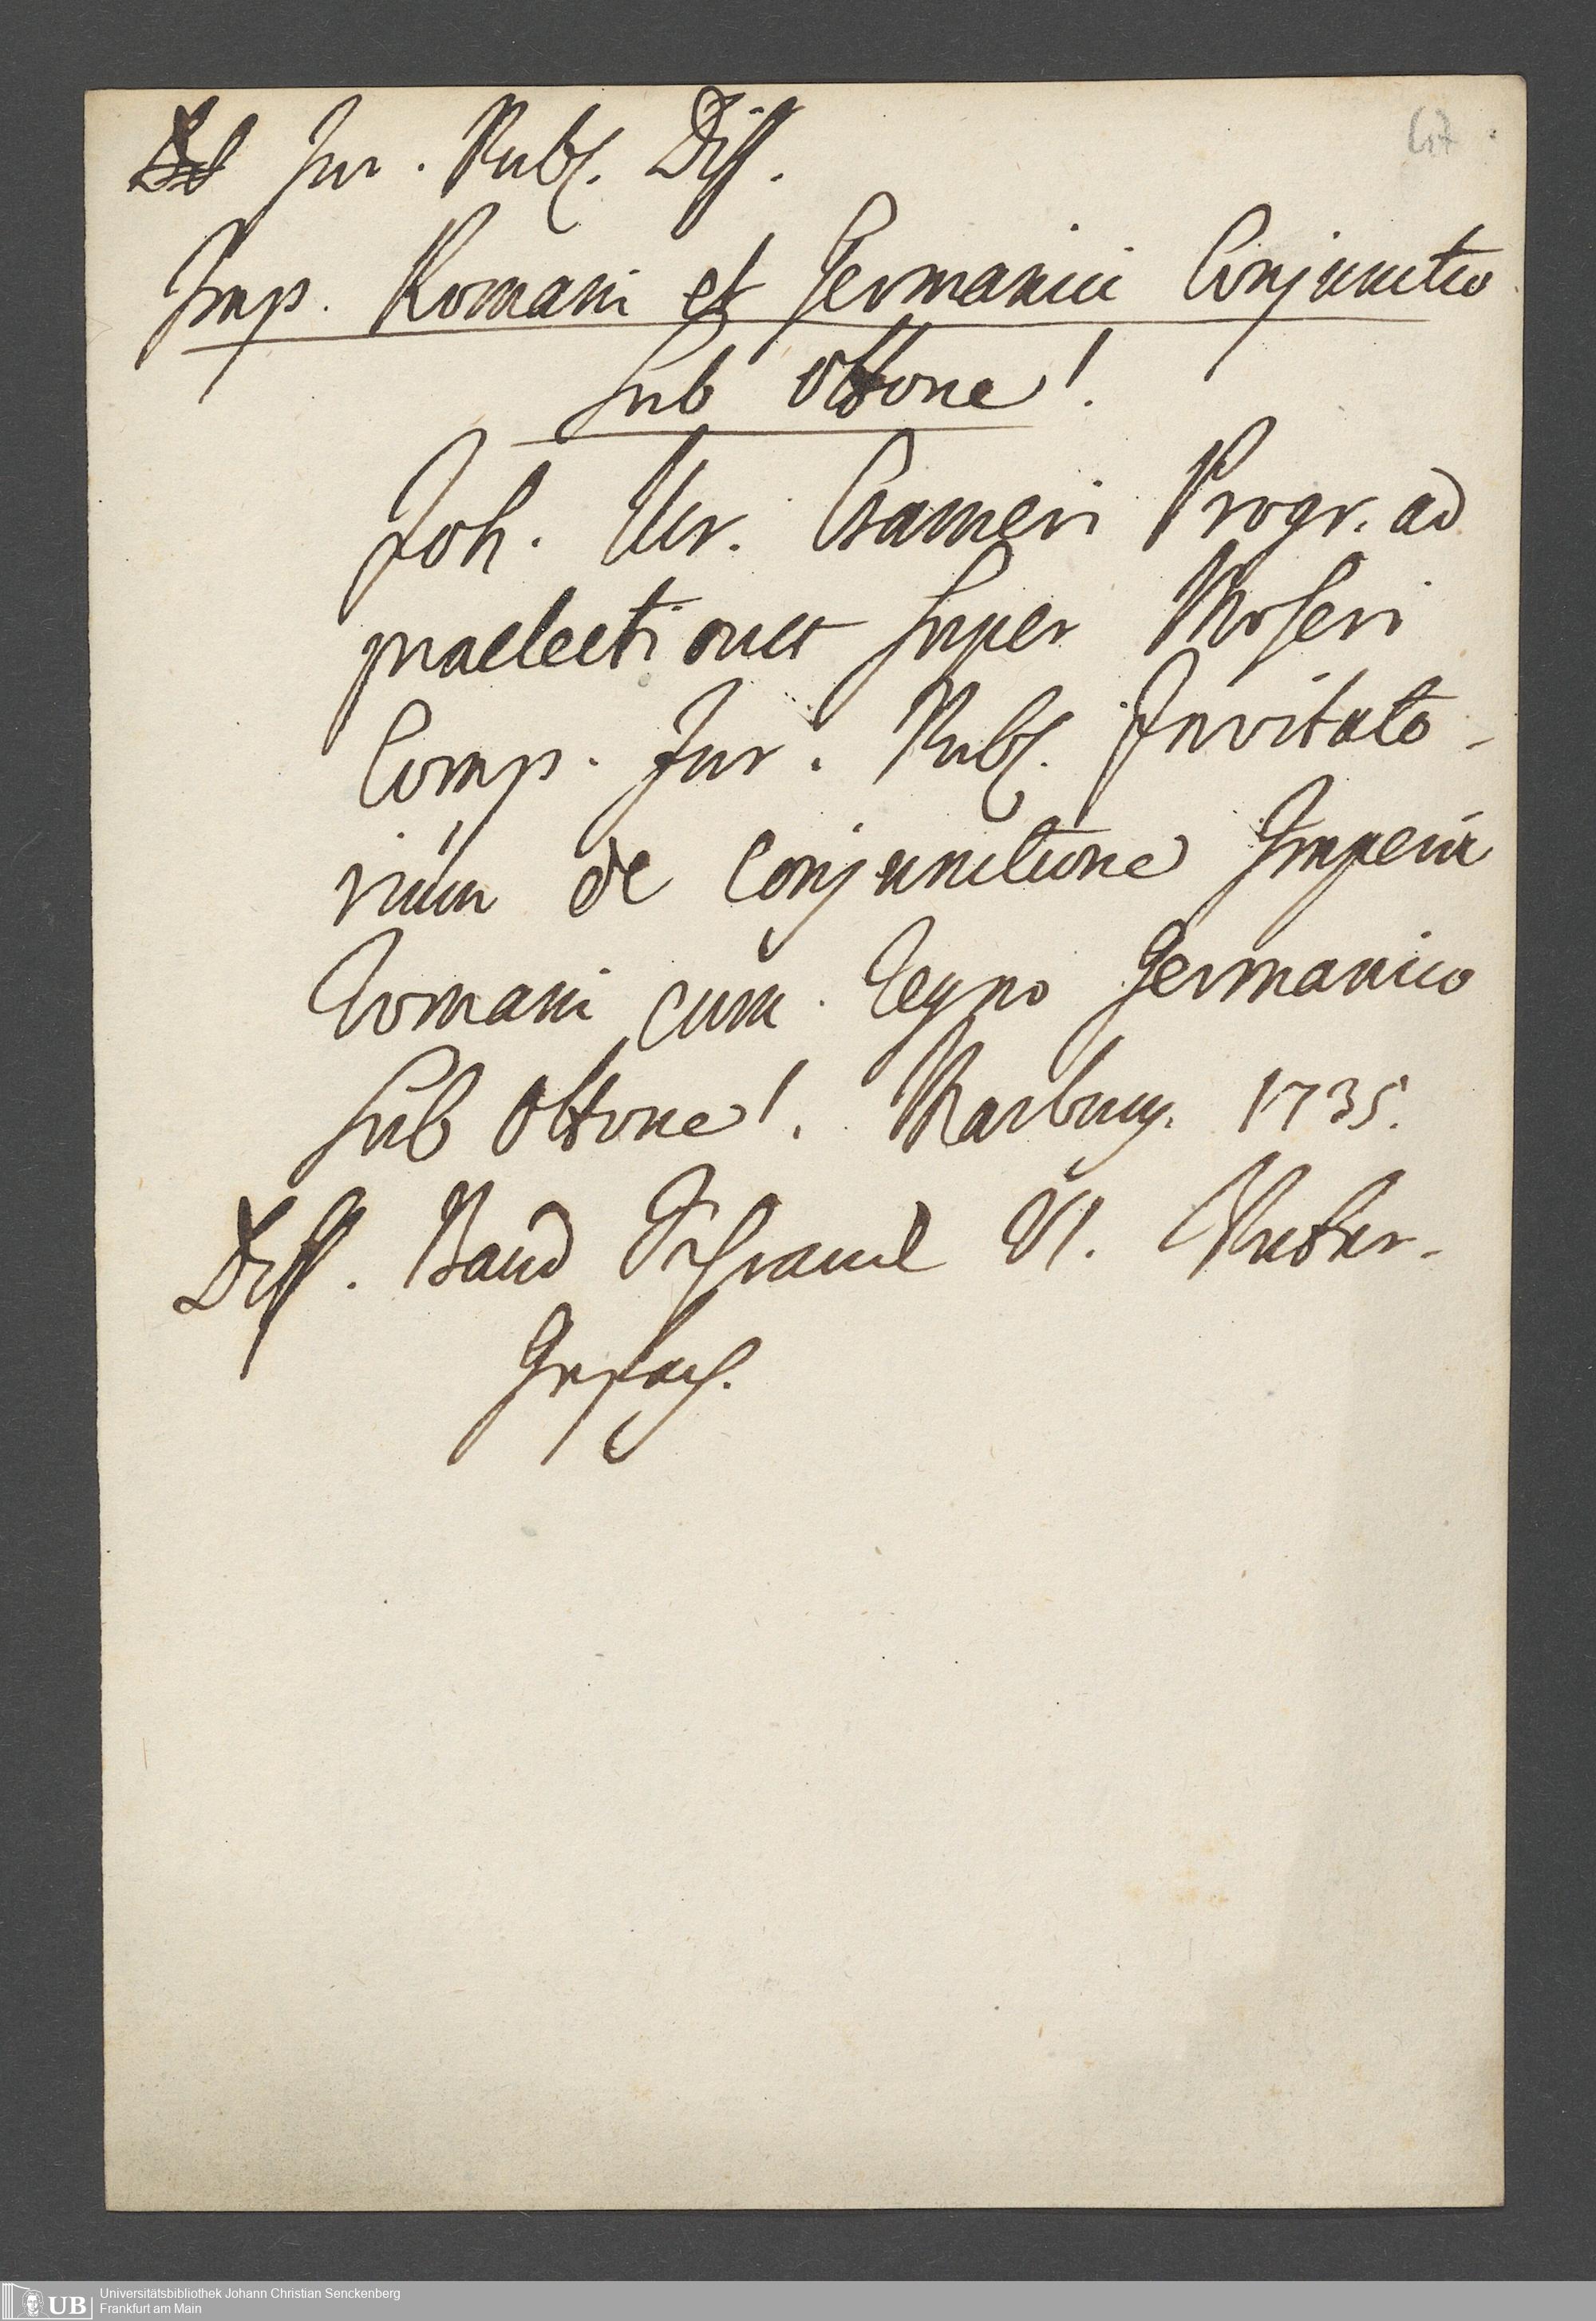 Jur. Publ. Diss.
Imp. Romani et Germanici Conjunctio
sub Ottone I.
Joh. Ulr. Crameri Progr. ad
praelectiones super Moseri
Comp. Jur. Publ. Invitato-
rium de conjunctione Imperii
Romani cum regno Germanico
sub Ottone I. Marburg. 1735.
Diss. Band Schrank VI.
Universitätsbibliothek Johann Christian Senckenberg
Frankfurt am Main
UB